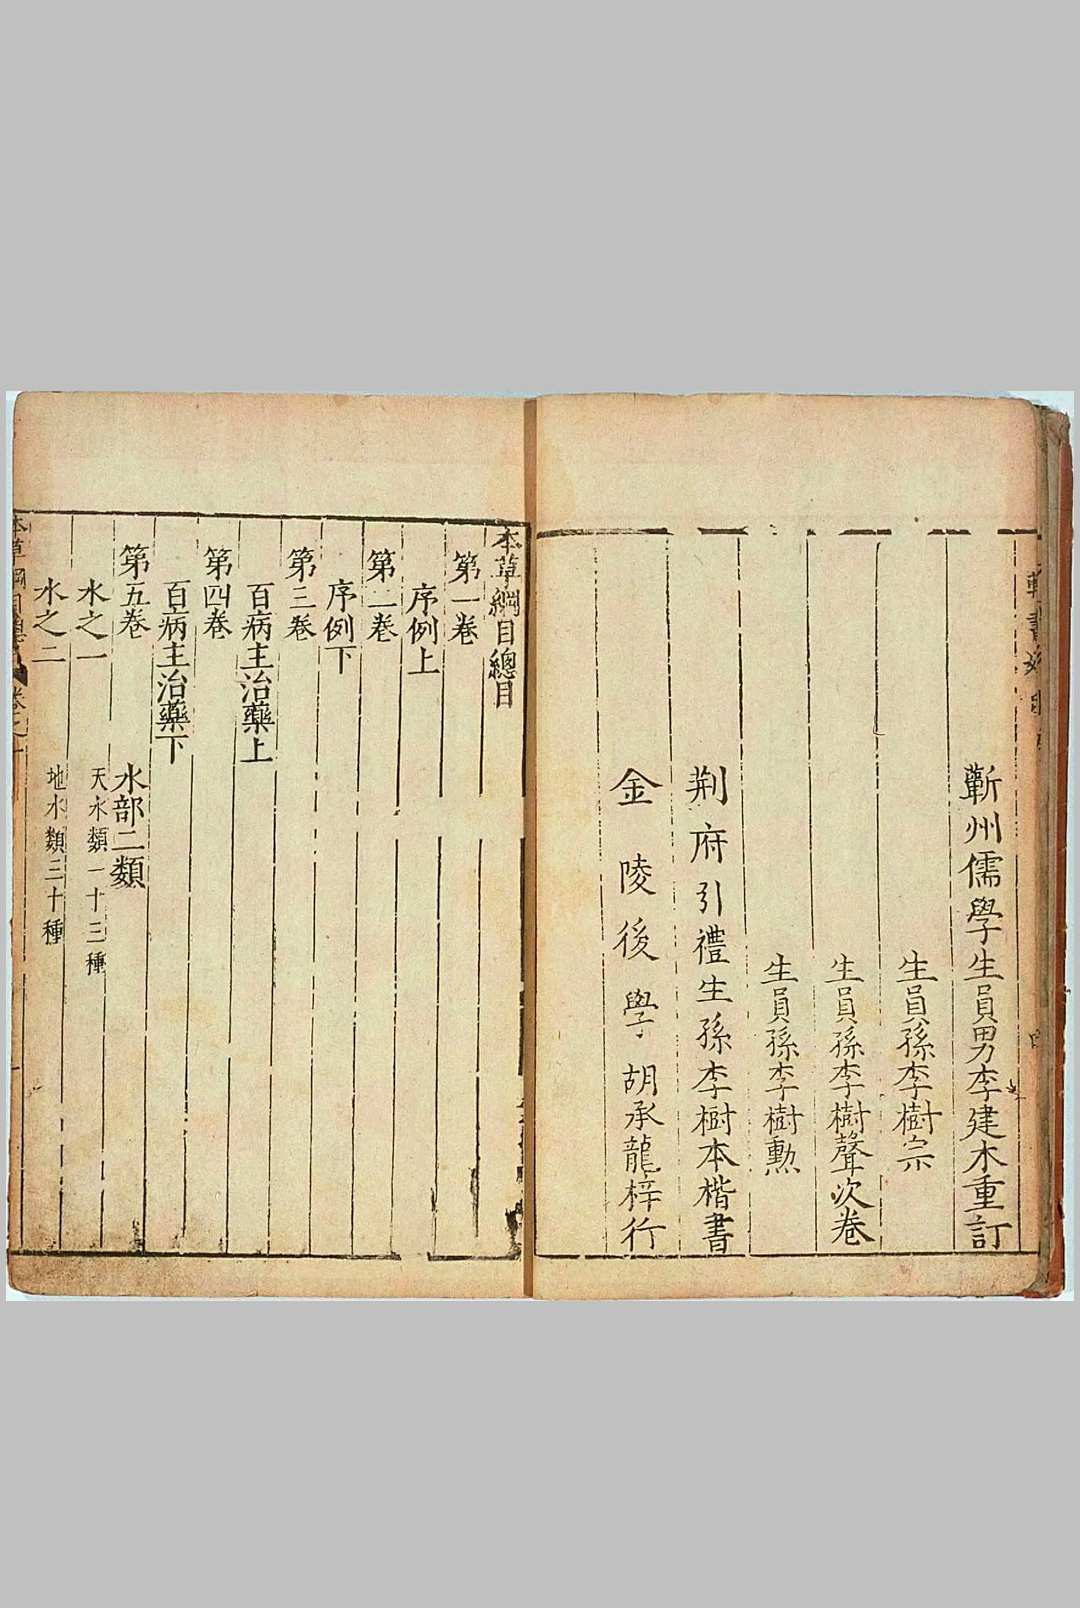 蘄州儒學生員男李建木重訂
生員孫李樹宗
生員孫李樹聲次卷
生員孫李樹勲
荆府引禮生孫李樹本楷書
金陵後學胡承龍梓行
本草綱目總目
第一卷
序例上
第二卷
序例下
第三卷
百病主治藥上
第四卷
百病主治藥下
第五卷 水部二類
水之一 天水類一十三種
水之二 地水類三十種
本草綱目總目 卷之一